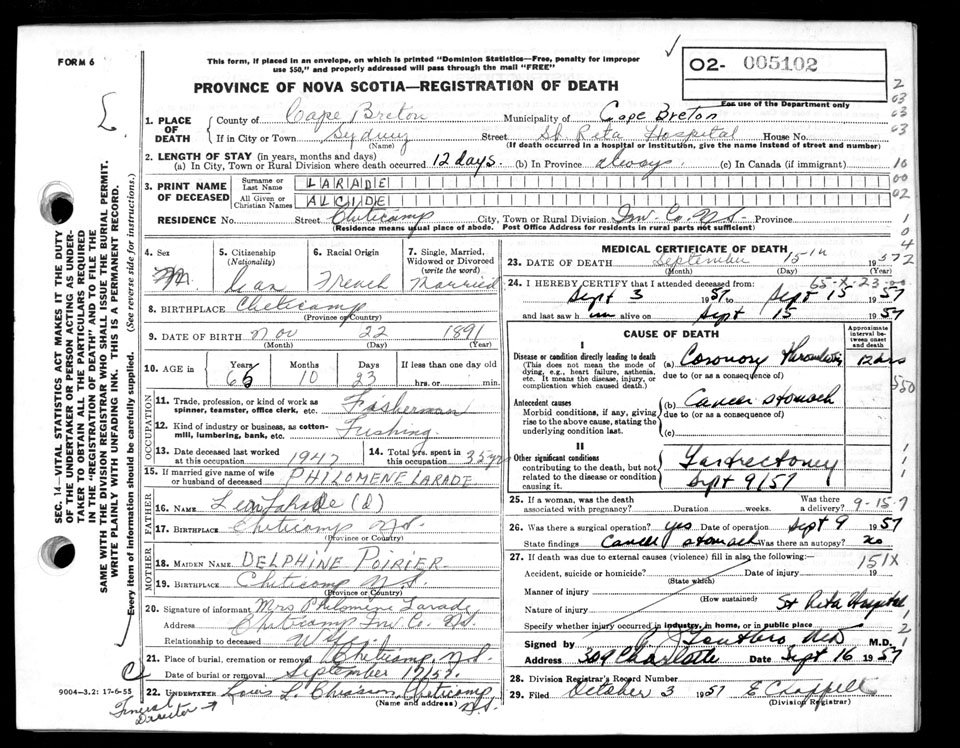 FORM 6
This form, if placed in an envelope, on which is printed "Dominion Statistics—Free, penalty for improper
use $50," and properly addressed will pass through the mail "FREE"
O2- 005102
For use of the Department only
PROVINCE OF NOVA SCOTIA—REGISTRATION OF DEATH
1. PLACE OF DEATH County of Cape Breton Municipality of Cape Breton
If in City or Town Sydney (Name) Street St Rita Hospital House No.
(If death occurred in a hospital or institution, give the name instead of street and number)
2. LENGTH OF STAY (in years, months and days)
(a) In City, Town or Rural Division where death occurred 12 days (b) In Province always (c) In Canada (if immigrant)
3. PRINT NAME OF DECEASED Surname or Last Name LARADE
All Given or Christian Names ALCIDE
RESIDENCE No. Street Cheticamp City, Town or Rural Division Inv. Co. N.S. Province
(Residence means usual place of abode. Post Office Address for residents in rural parts not sufficient)
4. Sex M.
5. Citizenship (Nationality) Can
6. Racial Origin French
7. Single, Married, Widowed or Divorced (write the word) Married
8. BIRTHPLACE Cheticamp
(Province or Country)
9. DATE OF BIRTH Nov 22 1891
(Month) (Day) (Year)
10. AGE in Years Months 10 Days 23 If less than one day old hrs. or min.
OCCUPATION
11. Trade, profession, or kind of work as spinner, teamster, office clerk, etc. Fisherman
12. Kind of industry or business, as cotton-mill, lumbering, bank, etc. Fishing
13. Date deceased last worked at this occupation 1947
14. Total yrs. spent in this occupation 35 yrs
15. If married give name of wife or husband of deceased PHILOMENE LARADE
FATHER
16. NAME Leo Larade (d)
17. BIRTHPLACE Cheticamp N.S.
(Province or Country)
MOTHER
18. MAIDEN NAME DELPHINE POIRIER
19. BIRTHPLACE Cheticamp N.S.
(Province or Country)
20. Signature of informant Mrs Philomene Larade
Address Cheticamp Inv Co. N.S.
Relationship to deceased Wife
21. Place of burial, cremation or removal Cheticamp, N.S.
Date of burial or removal September
22. UNDERTAKER Louis L. Chiasson, Cheticamp, N.S.
(Name and address)
Funeral Director
9004-3.2: 17-6-55
MEDICAL CERTIFICATE OF DEATH
23. DATE OF DEATH September 15th 1957
(Month) (Day) (Year)
24. I HEREBY CERTIFY that I attended deceased from:
Sept 3 1957 to Sept 15 1957
and last saw h im alive on Sept 15 1957
CAUSE OF DEATH
Approximate interval between onset and death
I
Disease or condition directly leading to death
(This does not mean the mode of dying, e.g., heart failure, asthenia, etc. It means the disease, injury, or complication which caused death.
(a) Coronary Thrombosis
due to (or as a consequence of)
Antecedent causes
Morbid conditions, if any, giving rise to the above cause, stating the underlying condition last.
(b) Cancer stomach
due to (or as a consequence of)
(c)
II
Other significant conditions
contributing to the death, but not related to the disease or condition causing it.
Gastrectomy
Sept 9/57
25. If a woman, was the death associated with pregnancy? Duration weeks. Was there a delivery?
9-15-7
26. Was there a surgical operation? yes Date of operation Sept 9 1957
State findings Cancer stomach Was there an autopsy? no
27. If death was due to external causes (violence) fill in also the following:
151X
Accident, suicide or homicide? Date of injury 19
(State which)
Manner of injury
(How sustained)
Nature of injury St Rita Hospital
Specify whether injury occurred in industry, in home, or in public place
Signed by M.D.
Address 309 Charlotte Date Sept 16 1957
28. Division Registrar's Record Number
29. Filed October 3 1957 E Chappell
(Division Registrar)
SEC. 14—VITAL STATISTICS ACT MAKES IT THE DUTY
OF THE UNDERTAKER OR PERSON ACTING AS UNDER-
TAKER TO OBTAIN ALL THE PARTICULARS REQUIRED
IN THE "REGISTRATION OF DEATH" AND TO FILE THE
SAME WITH THE DIVISION REGISTRAR WHO SHALL ISSUE THE BURIAL PERMIT.
WRITE PLAINLY WITH UNFADING INK. THIS IS A PERMANENT RECORD.
Every item of information should be carefully supplied. (See reverse side for instructions.)